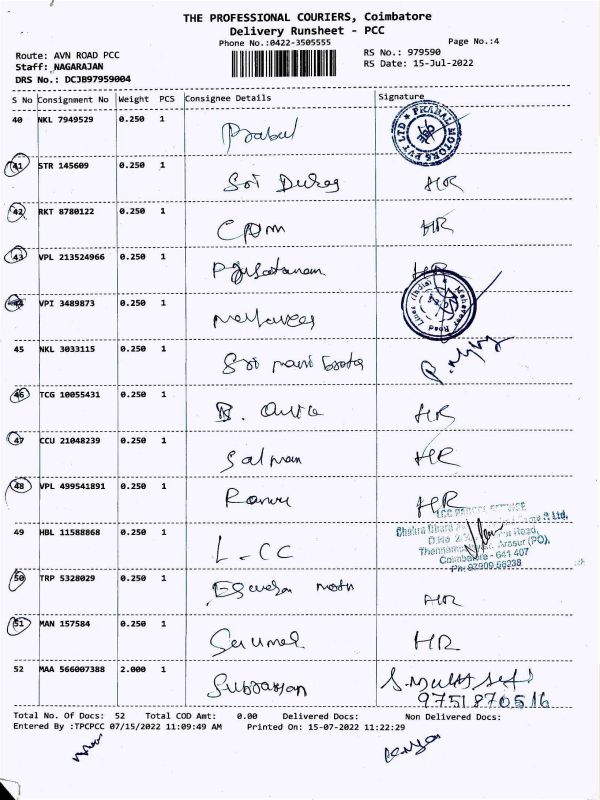 THE PROFESSIONAL COURIERS, Coimbatore
Delivery Runsheet - PCC
Phone No.:0422-3505555
Page No.:4
Route: AVN ROAD PCC
RS No.: 979590
Staff: NAGARAJAN
RS Date: 15-Jul-2022
DRS No.: DCJB97959004
S No Consignment No Weight PCS Consignee Details Signature
40 NKL 7949529 0.250 1 Prabal
PRABAL MOTORS PVT LTD
41 STR 145609 0.250 1 Sri Durga HR
42 RKT 8780122 0.250 1 CPM HR
43 VPL 213524966 0.250 1 HR
44 VPI 3489873 0.250 1
Mahaveer Road Lines (India)
45 NKL 3033115 0.250 1 Sri
46 TCG 10055431 0.250 1 B. HR
47 CCU 21048239 0.250 1 Salman HR
48 VPL 499541891 0.250 1 HR
49 HBL 11588868 0.250 1 L-CC
Arasur (PO),
Coimbatore - 641 407
50 TRP 5328029 0.250 1 HR
51 MAN 157584 0.250 1 HR
52 MAA 566007388 2.000 1
9751870516
Total No. Of Docs: 52 Total COD Amt: 0.00 Delivered Docs: Non Delivered Docs:
Entered By :TPCPCC 07/15/2022 11:09:49 AM Printed On: 15-07-2022 11:22:29